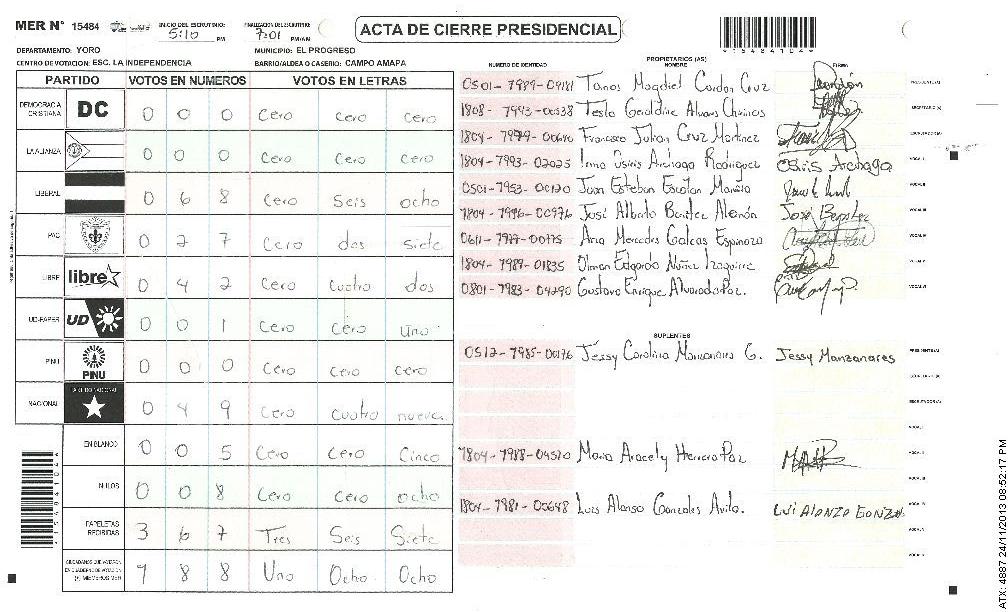 MER N° 15484
INICIO DEL ESCRUTINIO: 5:10 PM
FINALIZACION DEL ESCRUTINIO: 7:01 PM/AM
ACTA DE CIERRE PRESIDENCIAL
DEPARTAMENTO: YORO
MUNICIPIO: EL PROGRESO
CENTRO DE VOTACION: ESC. LA INDEPENDENCIA
BARRIO/ALDEA O CASERIO: CAMPO AMAPA
PARTIDO VOTOS EN NUMEROS VOTOS EN LETRAS
DEMOCRACIA CRISTIANA DC 0 0 0 Cero Cero Cero
LA ALIANZA 0 0 0 Cero Cero Cero
LIBERAL 0 6 8 Cero Seis ocho
PAC 0 2 7 Cero dos siete
LIBRE libre 0 4 2 Cero Cuatro dos
UD-FAPER UD 0 0 1 Cero Cero Uno
PINU PINU 0 0 0 Cero Cero Cero
NACIONAL PARTIDO NACIONAL 0 4 9 Cero Cuatro nueve
EN BLANCO 0 0 5 Cero Cero Cinco
NULOS 0 0 8 Cero Cero ocho
PAPELETAS RECIBIDAS 3 6 7 Tres Seis Siete
CIUDADANOS QUE VOTARON EN CUADERNO DE VOTACION (+) MIEMBROS MER 1 8 8 Uno Ocho Ocho
PROPIETARIOS (AS)
NUMERO DE IDENTIDAD NOMBRE FIRMA
Cordon Cruz PRESIDENTE(A)
1808-1993-00538 SECRETARIO(A)
Francisco Julian Cruz Martinez ESCRUTADOR(A)
1804-1993-02025 Osiris Archaga Rodriguez Osiris Archaga VOCAL I
0501-1953-00120 Juan Esteban VOCAL II
1804-1996-00976 José Benitez VOCAL III
Ana Mercedes Espinoza VOCAL IV
1804-1989-01835 Edgardo Nuñez Izaguirre VOCAL V
0801-1983-04290 Gustavo Enrique Alvarado Paz. VOCAL VI
SUPLENTES
0512-1985-00176 Jessy Carolina Manzanares G. Jessy Manzanares PRESIDENTE(A)
SECRETARIO(A)
ESCRUTADOR(A)
VOCAL I
1804-1988-04520 Maria Aracely Herrera Paz VOCAL II
1804-1981-00648 Luis Alonso Gonzales Avila. LUI ALONZO GONZAL VOCAL III
VOCAL IV
VOCAL V
ATX: 4887 24/11/2013 08:52:17 PM